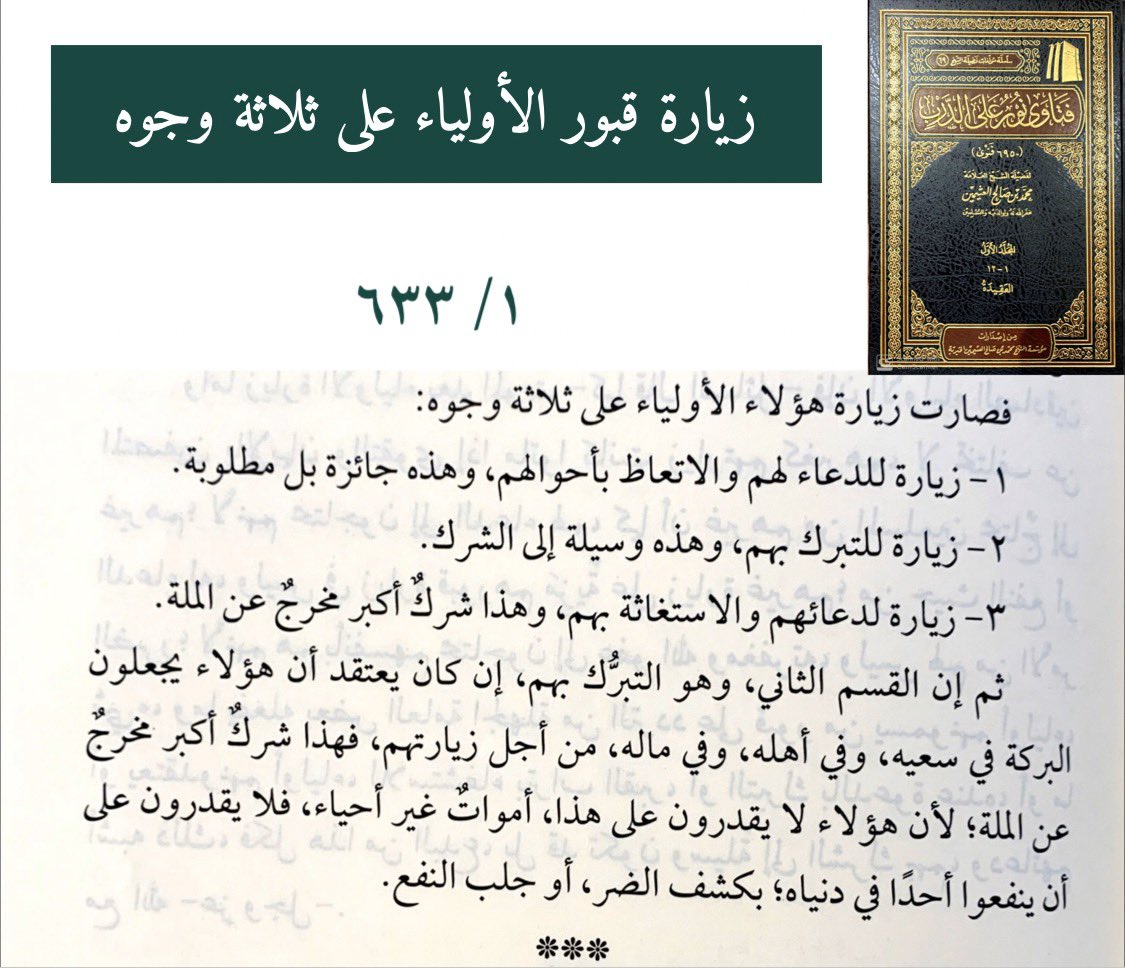 زيارة قبور الأولياء على ثلاثة وجوه
سلسلة مؤلفات فضيلة الشيخ (٦٩)
فتاوى نور على الدرب
(٦٩٥٠ فتوى)
لفضيلة الشيخ العلامة
محمد بن صالح العثيمين
غفر الله له ولوالديه وللمسلمين
المجلد الأول
١-١٢
العقيدة
من إصدارات
مؤسسة الشيخ محمد بن صالح العثيمين الخيرية
١/ ٦٣٣
فصارت زيارة هؤلاء الأولياء على ثلاثة وجوه:
١- زيارة للدعاء لهم والاتعاظ بأحوالهم، وهذه جائزة بل مطلوبة.
٢- زيارة للتبرك بهم، وهذه وسيلة إلى الشرك.
٣- زيارة لدعائهم والاستغاثة بهم، وهذا شركٌ أكبر مخرجٌ عن الملة.
ثم إن القسم الثاني، وهو التبرُّك بهم، إن كان يعتقد أن هؤلاء يجعلون
البركة في سعيه، وفي أهله، وفي ماله، من أجل زيارتهم، فهذا شركٌ أكبر مخرجٌ
عن الملة؛ لأن هؤلاء لا يقدرون على هذا، أمواتٌ غير أحياء، فلا يقدرون على
أن ينفعوا أحدًا في دنياه؛ بكشف الضر، أو جلب النفع.
***